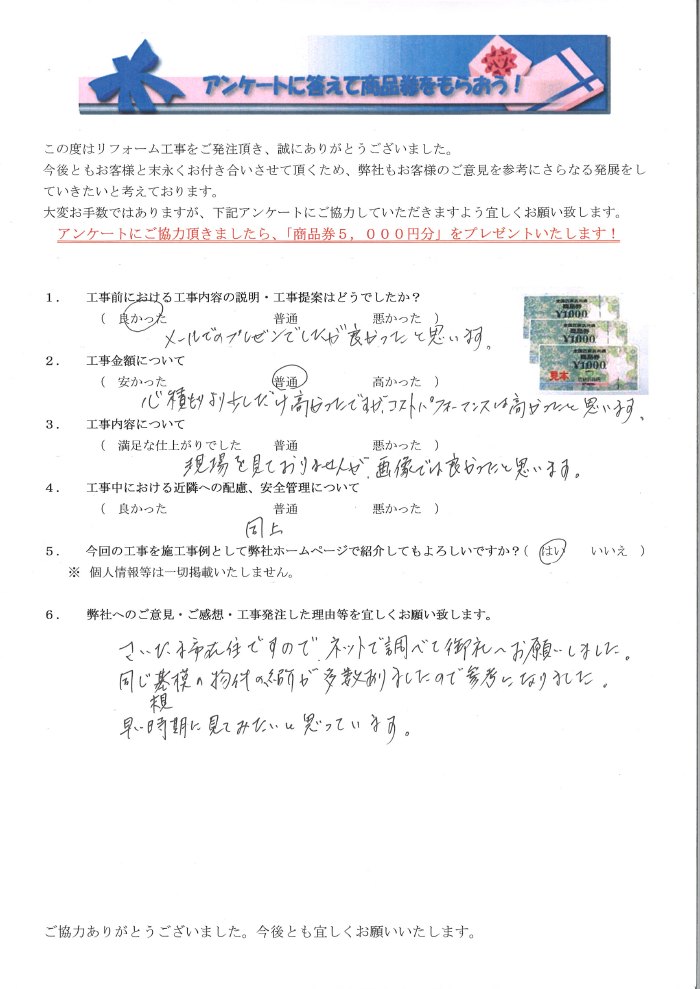 アンケートに答えて商品券をもらおう！
この度はリフォーム工事をご発注頂き、誠にありがとうございました。
今後ともお客様と末永くお付き合いさせて頂くため、弊社もお客様のご意見を参考にさらなる発展をし
ていきたいと考えております。
大変お手数ではありますが、下記アンケートにご協力していただきますよう宜しくお願い致します。
アンケートにご協力頂きましたら、「商品券５，０００円分」をプレゼントいたします！
１． 工事前における工事内容の説明・工事提案はどうでしたか？
（ 良かった 普通 悪かった ）
メールでのプレゼンでしたが良かったと思います。
２． 工事金額について
（ 安かった 普通 高かった ）
心積もりより少しだけ高かったですが、コストパフォーマンスは高かったと思います。
３． 工事内容について
（ 満足な仕上がりでした 普通 悪かった ）
現場を見ておりませんが、画像では良かったと思います。
４． 工事中における近隣への配慮、安全管理について
（ 良かった 普通 悪かった ）
同上
５． 今回の工事を施工事例として弊社ホームページで紹介してもよろしいですか？（ はい いいえ ）
※ 個人情報等は一切掲載いたしません。
６． 弊社へのご意見・ご感想・工事発注した理由等を宜しくお願い致します。
さいたま市在住ですので、ネットで調べて御社へお願いしました。
同じ規模の物件の紹介が多数ありましたので参考になりました。
早い時期に見てみたいと思っています。
ご協力ありがとうございました。今後とも宜しくお願いいたします。
商品券
¥1,000
商品券
¥1,000
見本